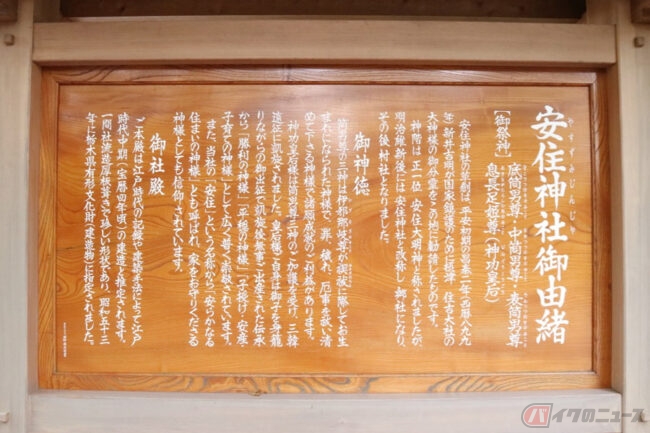 安住神社御由緒
やすずみじんじゃ
【御祭神】 底筒男尊・中筒男尊・表筒男尊
息長足姫尊(神功皇后)
安住神社の草創は、平安初期の昌泰二年(西暦八九九
年)新井吉明が国家鎮護のために摂津一住吉大社の
大神様の御分霊をこの地に勧請したものです。
神階は正一位 安住大明神と称されましたが、
明治維新後には安住神社と改称し郷社になり、
その後村社となりました。
御神徳
筒男尊の三神は伊邪那岐尊が禊祓に際してお生
まれになられた神様で、罪、穢れ、厄事を祓い清
めて下さる神様で諸願成就のご利益があります。
神功皇后様は筒男尊三神のご加護を受け、三韓
遠征に凱旋されました。皇后様ご自身は御子を身籠
りながらの御出征で凱旋後無事ご出産された伝承
から「勝利の神様」「平穏の神様」「子授け・安産・
子育ての神様」として広く普く崇敬されています。
また、当社の「安住」という名称から、「安らかなる
住まいの神様」とも呼ばれ、家をお守りくださる
神様としても信仰されています。
御社殿
ご本殿は江戸時代の記録や建築手法によって江戸
時代中期(宝暦四年頃)の建造と推定されます。
一間社流造厚板葺きで珍しい形状であり、昭和五十三
年に栃木県有形文化財(建造物)に指定されました。
バイクのニュース